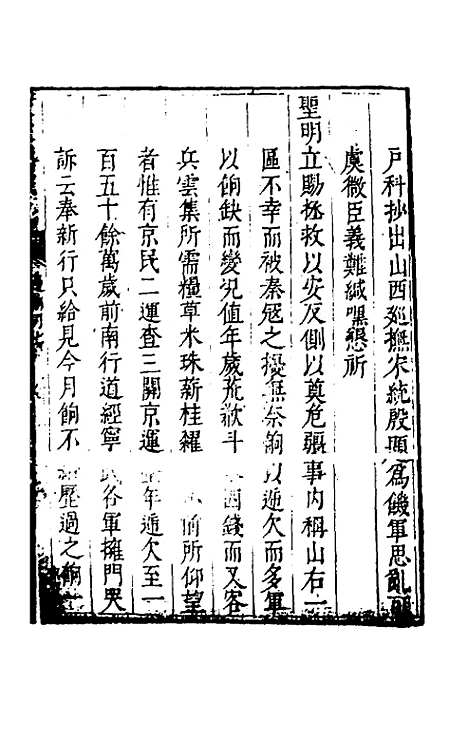 戶科抄出山西廵撫宋統殷題爲饑軍思亂可
虞微臣義難緘嘿懇祈
聖明立賜拯救以安反側以奠危疆事内稱山右一
區不幸而被秦寇之擾無奈餉以逋欠而多軍
以餉缺而變況值年歲荒歉斗 四錢而又客
兵雲集所需糧草米珠薪桂糴 前所仰望
者惟有京民二運查三關京運 年逋欠至一
百五十餘萬歲前南行道經寧武各軍擁門哭
訴云奉新行只給見今月餉不 歷過之餉